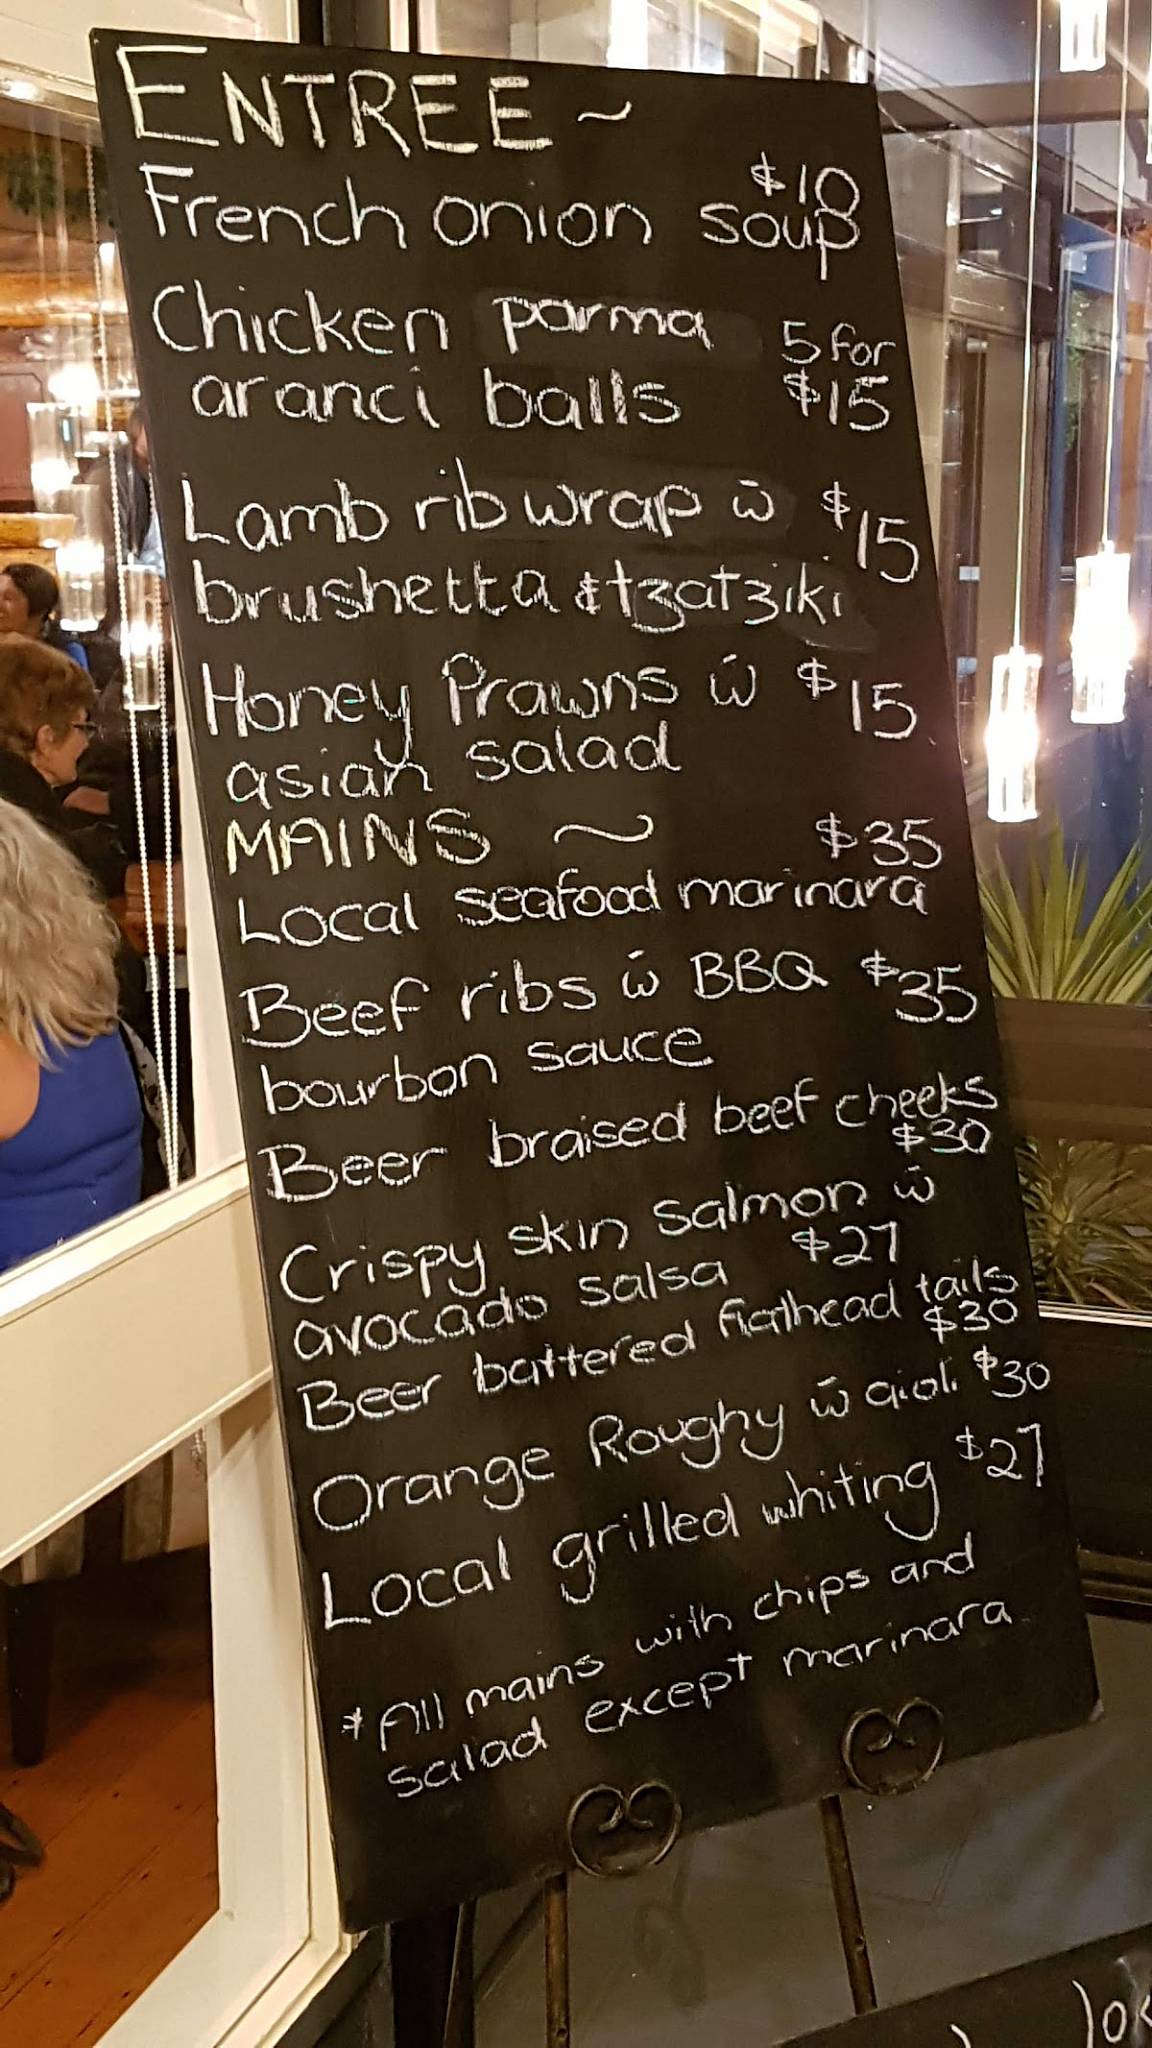 ENTREE ~
$10
French onion soup
Chicken parma 5 for
aranci balls $15
Lamb rib wrap w̄ $15
brushetta & tzatziki
Honey Prawns w̄ $15
asian salad
MAINS ~ $35
Local seafood marinara
Beef ribs w̄ BBQ $35
bourbon sauce
Beer braised beef cheeks
$30
Crispy skin salmon w̄
avocado salsa $27
Beer battered flathead tails
$30
Orange Roughy w̄ aioli $30
Local grilled whiting $27
* All mains with chips and
salad except marinara